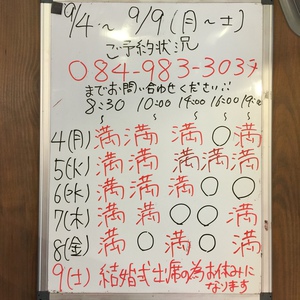 9/4〜9/9(月〜土)
ご予約状況
084-983-303
までお問い合わせください!!
8:30 10:00 14:00 16:00
4(月) 満 満 満 ○ 満
5(火) 満 満 満 満 満
6(水) 満 満 満 ○ ○
7(木) 満 満 ○ ○ 満
8(金) 満 ○ 満 ○ 満
9(土) 結婚式出席の為お休みに
なります